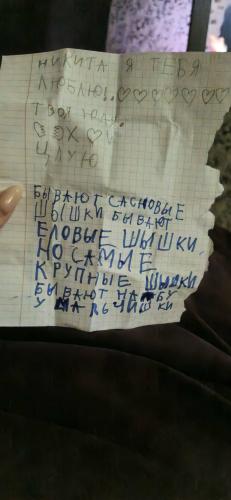 НИКИТА Я ТЕБЯ
ЛЮБЛЮ!..♡♡♡♡♡♡♡♡
ТВОЯ
ЦЛУЮ
БЫВАЮТ САСНОВЫЕ
ШЫШКИ БЫВАЮТ
ЕЛОВЫЕ ШЫШКИ.
НО САМЫЕ
КРУПНЫЕ ШЫШКИ
БЫВАЮТ НА ЛБУ
У МАЛЬЧИШКИ